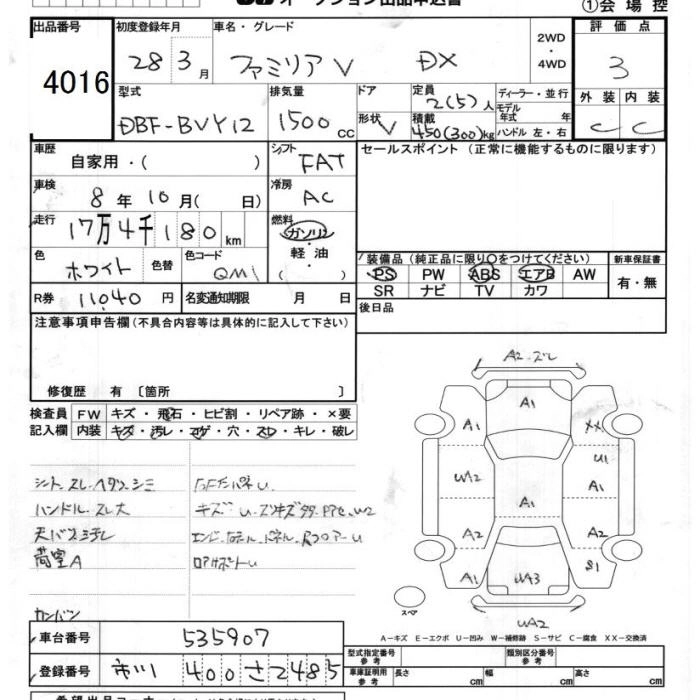 オークション出品申込書
①会場控
出品番号 4016
初度登録年月 28 3月
車名・グレード ファミリア V DX
2WD・4WD
評価点 3
型式 DBF-BVY12
排気量 1500 cc
ドア
形状 V
定員 2(5)人
積載 450(300)kg
ディーラー・並行
モデル年式 年
ハンドル 左・右
外装 C 内装 C
車歴 自家用・( )
シフト FAT
セールスポイント (正常に機能するものに限ります)
車検 8年10月( 日)
冷房 AC
走行 17万4千180km
燃料 ガソリン・軽油・( )
色 ホワイト 色替 色コード QM1
装備品(純正品に限り○をつけてください)
新車保証書
PS PW ABS エアB AW
SR ナビ TV カワ
有・無
R券 11040円 名変通知期限 月 日
後日品
注意事項申告欄(不具合内容等は具体的に記入して下さい)
修復歴 有〔箇所 〕
検査員記入欄
FW キズ・飛石・ヒビ割・リペア跡・×要
内装 キズ・汚レ・コゲ・穴・スレ・キレ・破レ
シート スレ ヘタリ シミ
ハンドル スレ大
荷室A
A2 ズレ
A1
A1 XX
U1
UA2 A1 A1
A2 A2
A1 UA3 S1
スペア
UA2
A−キズ E−エクボ U−凹み W−補修跡 S−サビ C−腐食 XX−交換済
車台番号 535907
型式指定番号 参考
類別区分番号 参考
登録番号 市川 400 さ 2485
車庫証明用 参考 長さ cm 幅 cm 高さ cm